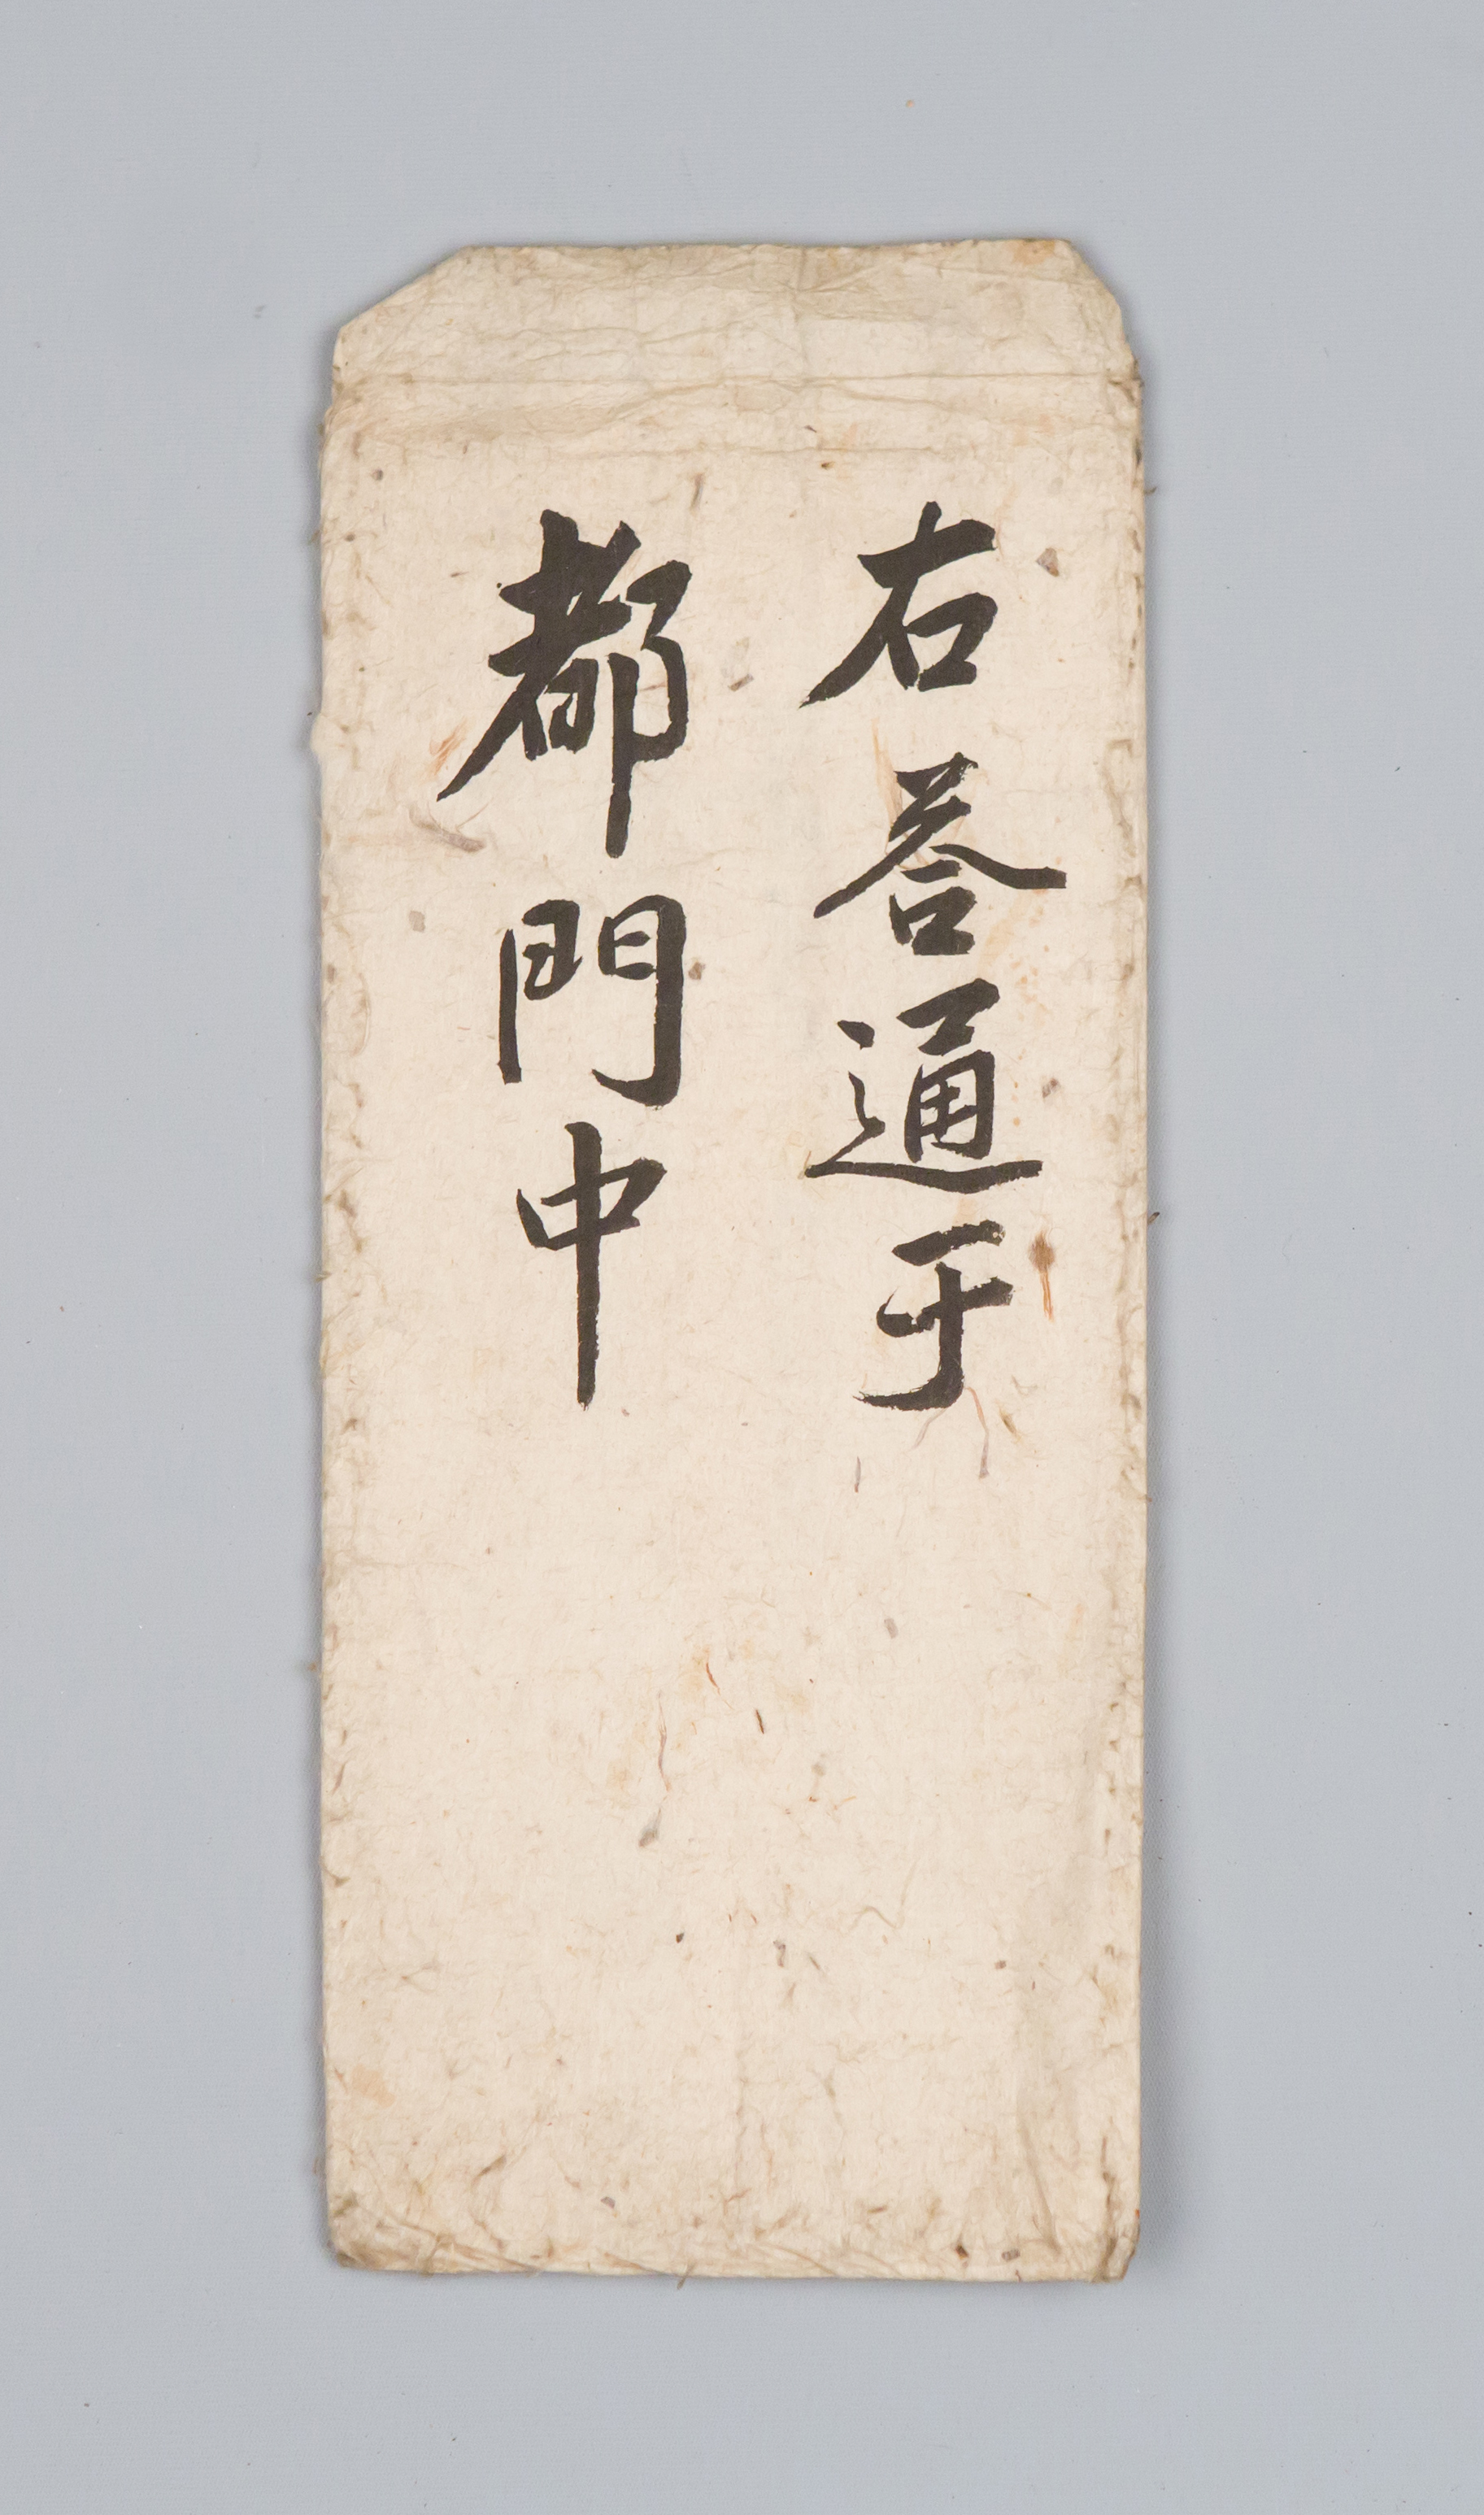 右答通于
都門中